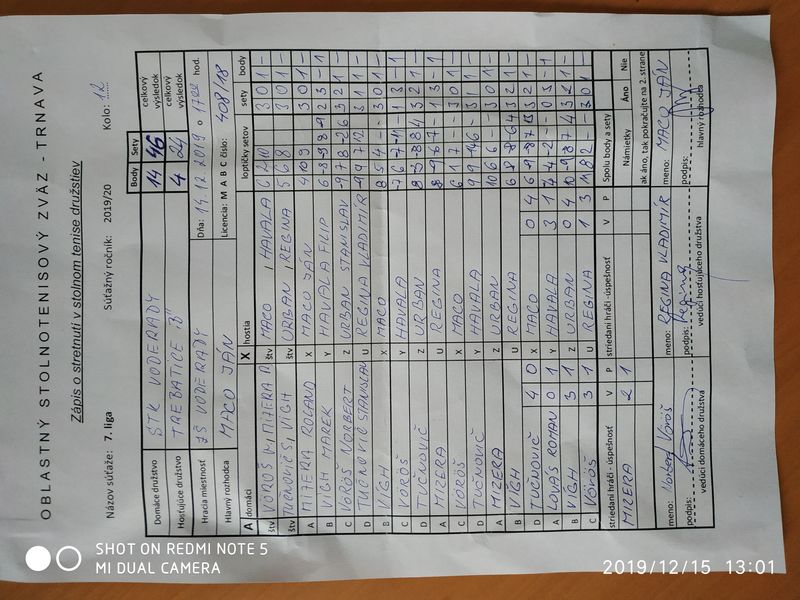 OBLASTNÝ STOLNOTENISOVÝ ZVÄZ - TRNAVA
Zápis o stretnutí v stolnom tenise družstiev
Názov súťaže: 7. liga Súťažný ročník: 2019/20 Kolo: 12
Body Sety
Domáce družstvo STK VODERADY 14 46 celkový výsledok
Hosťujúce družstvo TREBATICE "B" 4 24 celkový výsledok
Hracia miestnosť ZŠ VODERADY Dňa: 14.12.2019 o 17:00 hod.
Hlavný rozhodca MACO JÁN Licencia: M A B C číslo: 408/18
A domáci X hostia loptičky setov sety body
štv VÖRÖŠ N, MIZERA R štv MACO, HAVALA
štv TUČNOVIČ S, VIGH štv URBAN, REGINA 5 6 8 3 0 1 -
A MIZERA ROLAND X MACO JÁN 4 10 9 3 0 1 -
B VIGH MAREK Y HAVALA FILIP 6 -8 -9 8 -9 2 3 - 1
C VÖRÖŠ NORBERT Z URBAN STANISLAV -9 7 8 -2 6 3 2 1 -
D TUČNOVIČ STANISLAV U REGINA VLADIMÍR -9 9 7 12 3 1 1 -
B VIGH X MACO 8 5 4 - - 3 0 1 -
C VÖRÖŠ Y HAVALA -7 6 -7 -11 - 1 3 - 1
D TUČNOVIČ Z URBAN 3 2 1 -
A MIZERA U REGINA 8 -9 -6 -7 - 1 3 - 1
C VÖRÖŠ X MACO 6 1 7 - - 3 0 1 -
D TUČNOVIČ Y HAVALA 9 9 -14 6 - 3 1 1 -
A MIZERA Z URBAN 10 6 6 - - 3 0 1 -
B VIGH U REGINA 6 -8 8 -6 4 3 2 1 -
D TUČNOVIČ 4 0 X MACO 0 4 6 -9 8 -7 3 2 1 -
A LOVÁS ROMAN 0 1 Y HAVALA 3 1 0 3 - 1
B VIGH 3 1 Z URBAN 0 4 10 -9 -8 7 4 3 2 1 -
C VÖRÖŠ 3 1 U REGINA 1 3 11 8 2 - - 3 0 1 -
striedaní hráči - úspešnosť V P striedaní hráči -úspešnosť V P Spolu body a sety
MIZERA 2 1 Námietky Áno Nie
ak áno, tak pokračujte na 2.strane
meno: Norbert Vöröš meno: REGINA VLADIMÍR meno: MACO JÁN
podpis: podpis: Regina podpis:
vedúci domáceho družstva vedúci hosťujúceho družstva hlavný rozhodca
SHOT ON REDMI NOTE 5
MI DUAL CAMERA
2019/12/15 13:01